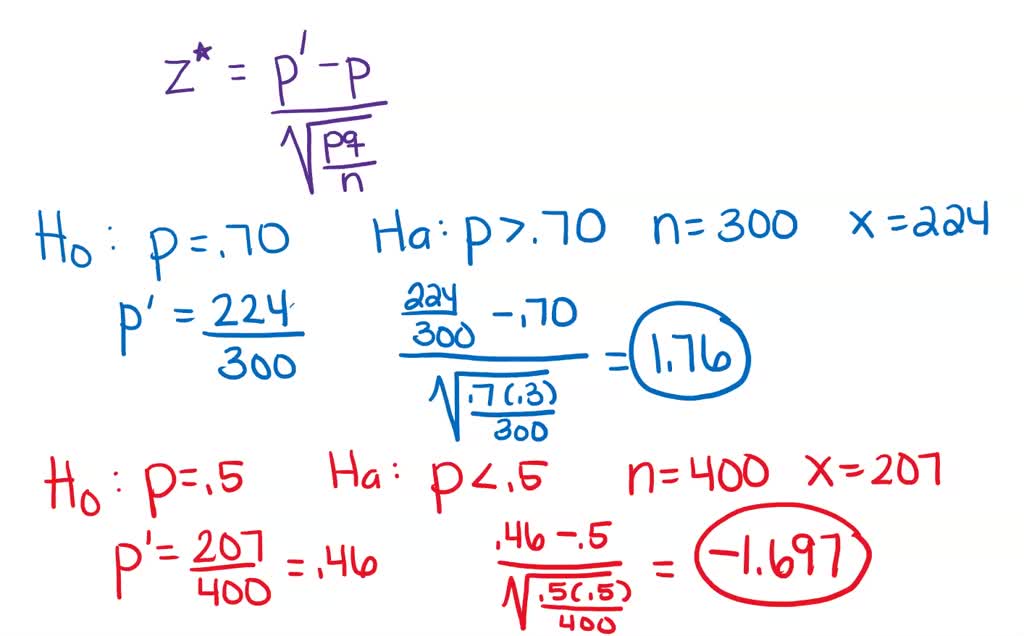 z* = p' - p / √(pq/n)
H₀: p = .70 Ha: p > .70 n = 300 x = 224
p' = 224/300 (224/300 - .70) / √(.7(.3)/300) = 1.76
H₀: p = .5 Ha: p < .5 n = 400 x = 207
p' = 207/400 = .46 (.46 - .5) / √(.5(.5)/400) = -1.697